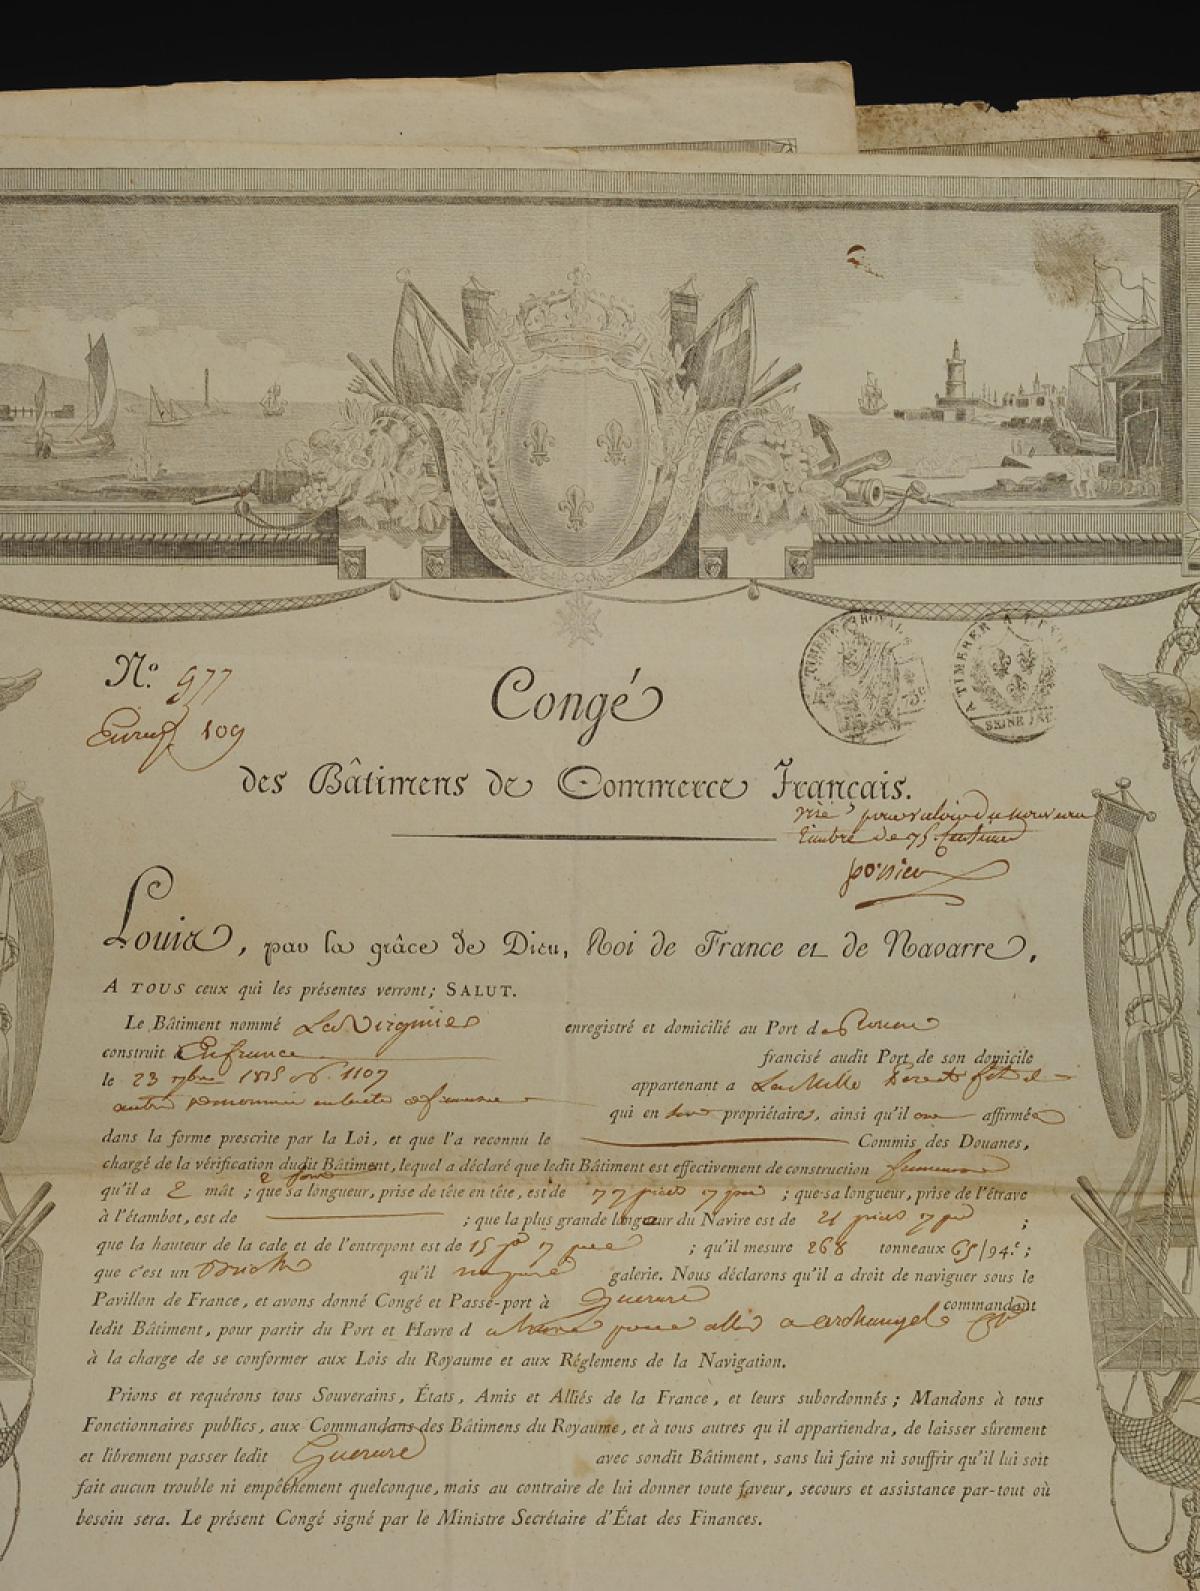 N.º 977
109
TIMBRE ROYAL
A TIMBRER A L'EXT
SEINE INF
Congé
des Bâtimens de Commerce Français.
visé pour valoir du nouveau
timbre de 75 Centimes
Louis, par la grâce de Dieu, Roi de France et de Navarre,
A TOUS ceux qui les présentes verront; SALUT.
Le Bâtiment nommé La Virginie enregistré et domicilié au Port de Rouen
construit En france francisé audit Port de son domicile
le 23 1815 n.º 1107 appartenant a
qui en propriétaires, ainsi qu'il ont affirmé
dans la forme prescrite par la Loi, et que l'a reconnu le Commis des Douanes,
chargé de la vérification dudit Bâtiment, lequel a déclaré que ledit Bâtiment est effectivement de construction
qu'il a 2 mât; que sa longueur, prise de tête en tête, est de 77 pieds 7 ; que sa longueur, prise de l'étrave
à l'étambot, est de ; que la plus grande largeur du Navire est de 21 pieds 7 ;
que la hauteur de la cale et de l'entrepont est de 15 7 ; qu'il mesure 268 tonneaux 65/94.e;
que c'est un Brick qu'il galerie. Nous déclarons qu'il a droit de naviguer sous le
Pavillon de France, et avons donné Congé et Passe-port à Guerure commandant
ledit Bâtiment, pour partir du Port et Havre d pour aller a archangel
à la charge de se conformer aux Lois du Royaume et aux Réglemens de la Navigation.
Prions et requérons tous Souverains, États, Amis et Alliés de la France, et leurs subordonnés; Mandons à tous
Fonctionnaires publics, aux Commandans des Bâtimens du Royaume, et à tous autres qu'il appartiendra, de laisser sûrement
et librement passer ledit Guerure avec sondit Bâtiment, sans lui faire ni souffrir qu'il lui soit
fait aucun trouble ni empêchement quelconque, mais au contraire de lui donner toute faveur, secours et assistance par-tout où
besoin sera. Le présent Congé signé par le Ministre Secrétaire d'État des Finances.